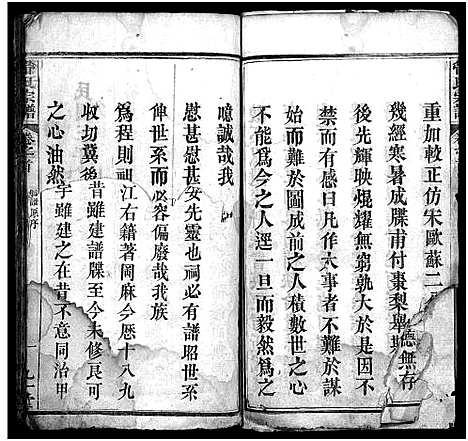 重加較正仿宋歐蘇二
幾經寒暑成牒甫付棗梨舉斯德無存
後先輝映焜耀無窮孰大於是
禁而有感曰凡作大事者不難於謀
始而難於圖成前之人積數世之心
不能為今之人逕一旦而毅然為之
噫誠哉我
慰甚慰甚安先靈也祠必有譜昭世系
俾世系不容偏廢哉我族
為程則祖江右籍著岡麻今歷十八九
收切冀後昔雖建譜牒至今未修良可
之心油然宇雖建之在昔不意同治甲
氏宗譜
卷之首
原序